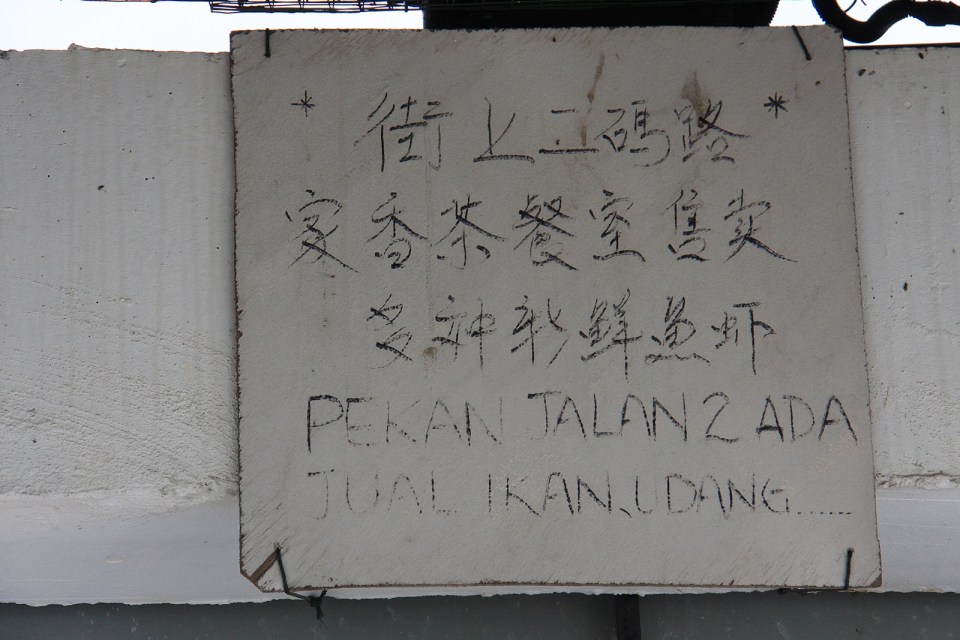 * 街上二码路 *
家香茶餐室售卖
多种新鲜鱼虾
PEKAN JALAN 2 ADA
JUAL IKAN, UDANG.......